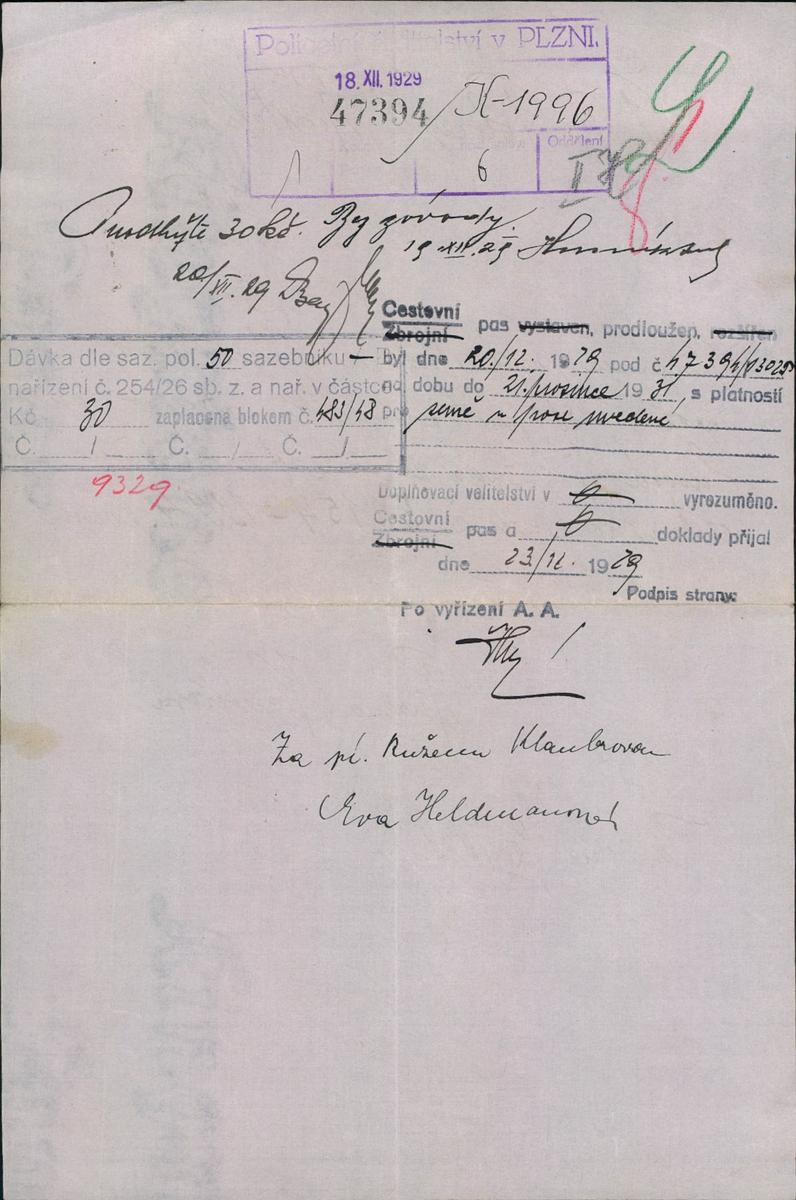 Policejní ředitelství v PLZNI.
18. XII. 1929
47394 / K-1996
Oddělení
1 6 I
30 Kč. Bez závady.
19. XII. 29
20/XII. 29
Cestovní
Zbrojní pas vystaven, prodloužen, rozšířen
byl dne 20/12. 1929 pod č 47394/
na dobu do 21. prosince 1931, s platností
pro země v pase uvedené
Dávka dle saz. pol. 50 sazebníku
nařízení č. 254/26 sb. z. a nař. v částce
Kč 30 zaplacena blokem č. 483/48
Č. / Č. / Č. /
9329.
Doplňovací velitelství v vyrozuměno.
Cestovní
Zbrojní pas a doklady přijal
dne 23./12. 1929
Podpis strany:
Po vyřízení A. A.
Za pí. Ruženu Klaubrovou
Eva Heldmanová